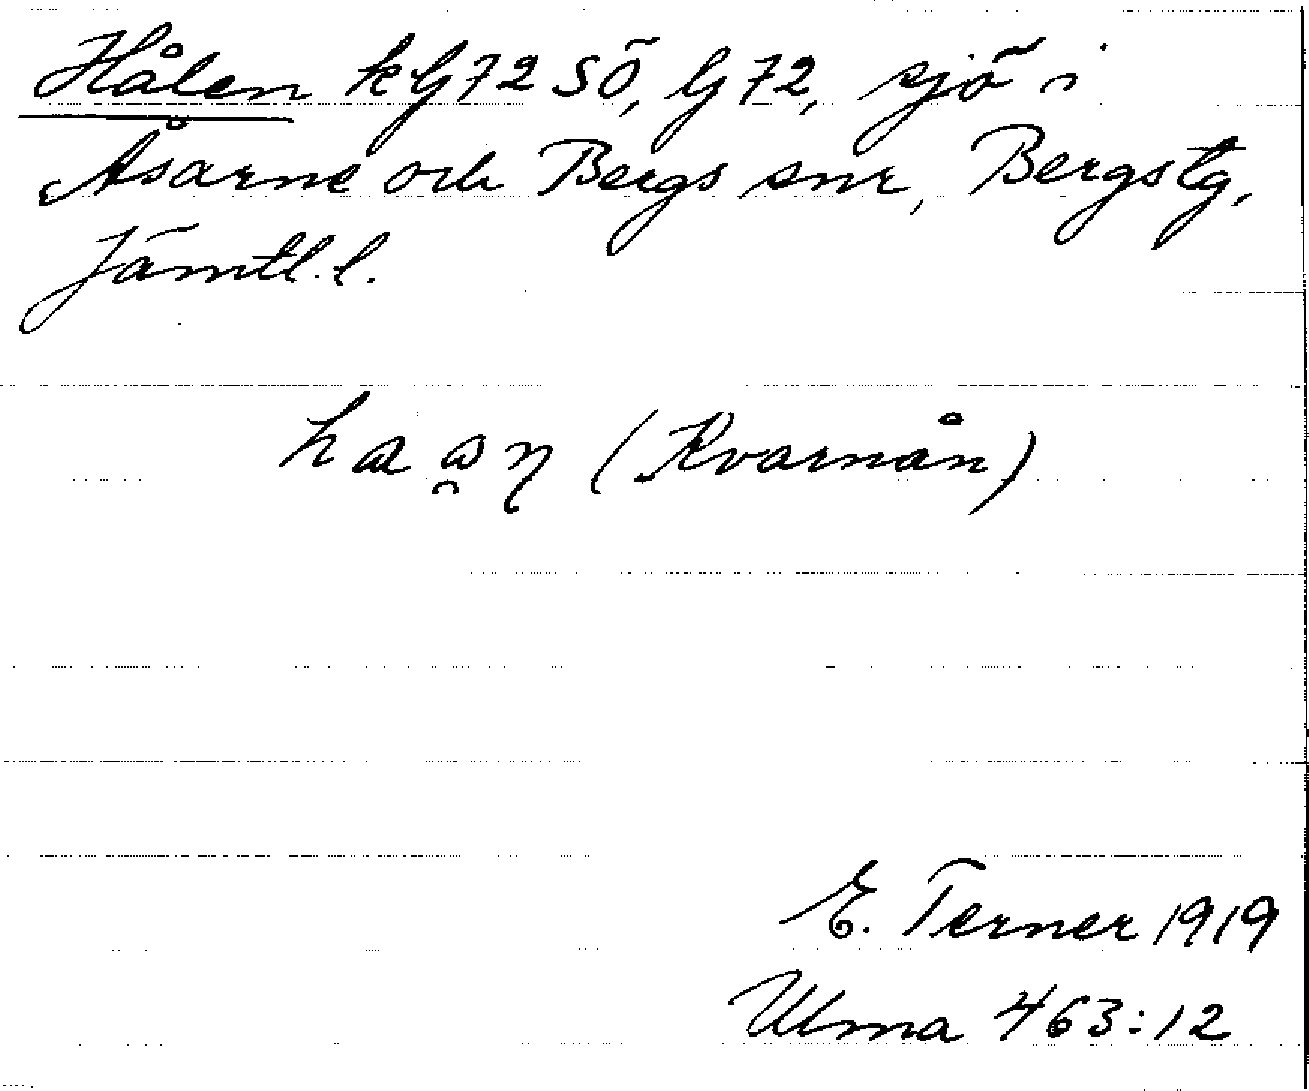 Hålen kG72SÖ, G72, sjö i
Åsarne och Bergs snr, Bergstg,
Jämtl. l.
(Kvarnån)
E. Terner 1919
Ulma 463:12